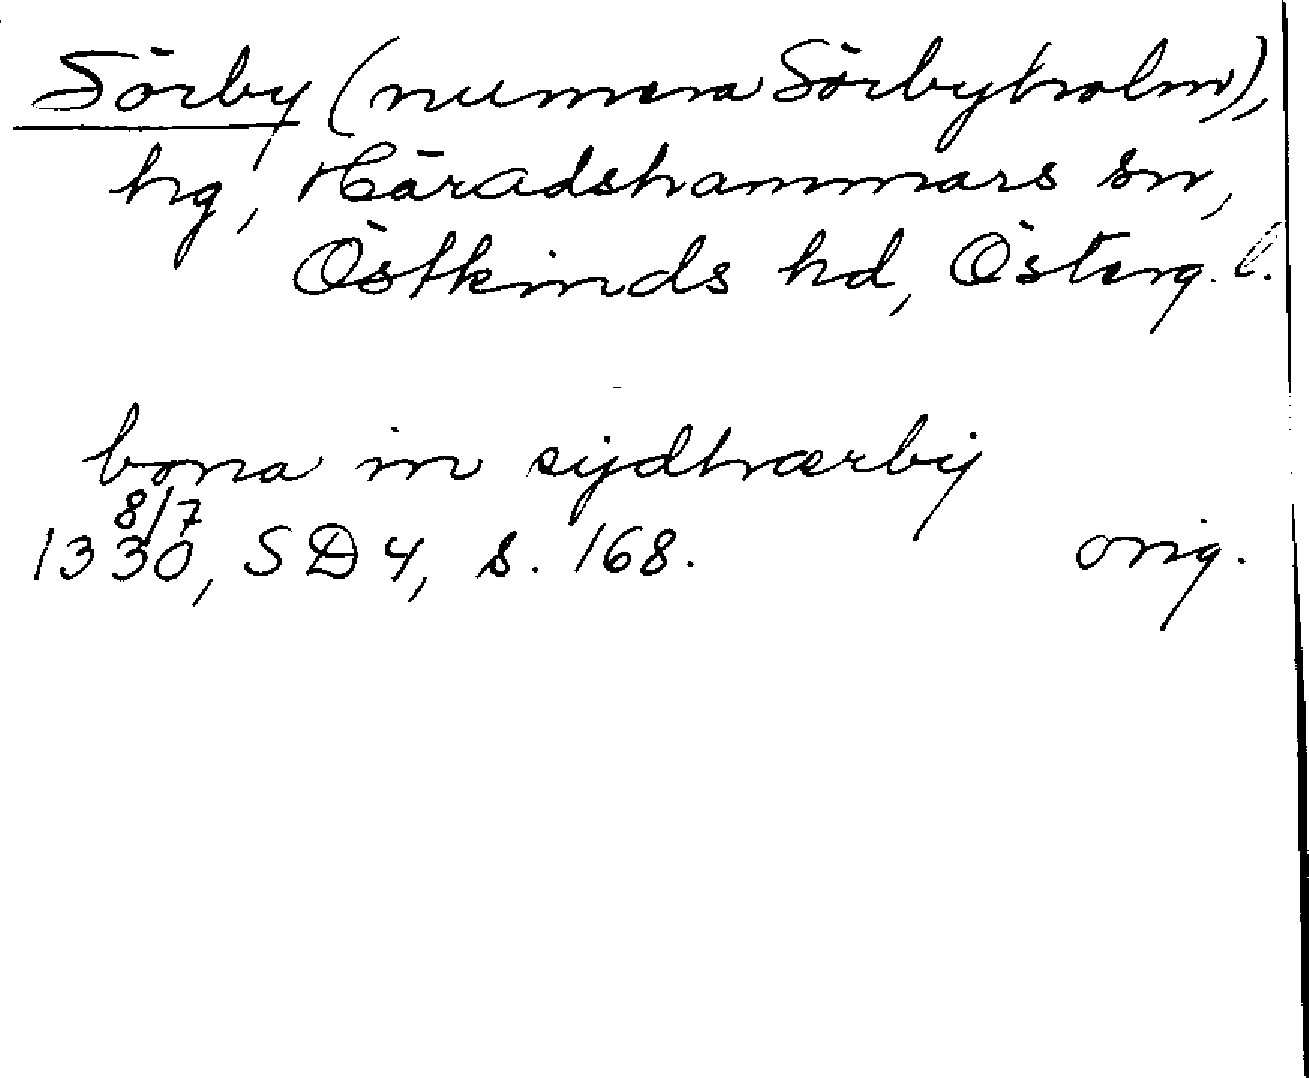 Sörby (numera Sörbyholm),
hg, Häradshammars sn,
Östkinds hd, Österg. l.
bona in sydhærby
8/7
1330, SD 4, s. 168. orig.